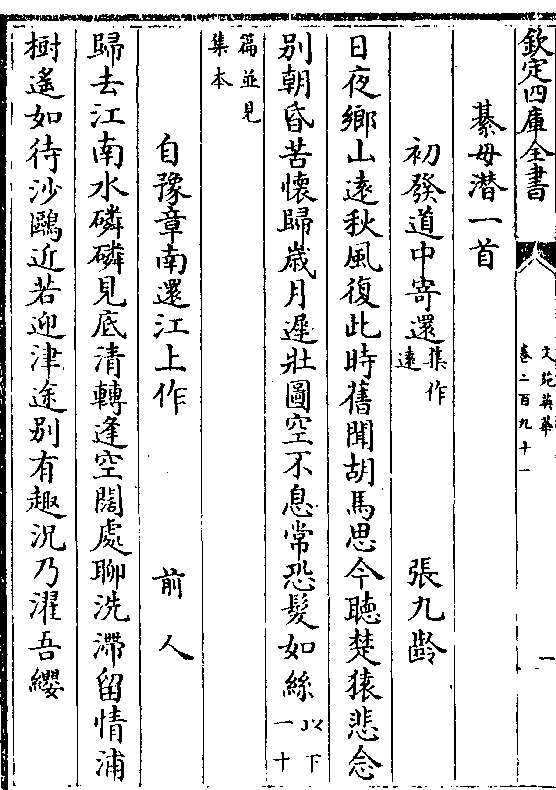 欽定四庫全書
文苑英華
卷二百九十一
一
綦毋潜一首
初發道中寄還集作遠
張九齡
日夜鄉山遠秋風復此時舊聞胡馬思今聽楚猿悲念
別朝昏苦懷歸歲月遲壯圖空不息常恐髮如絲以下一十
篇並見集本
自豫章南還江上作
前人
歸去江南水磷磷見底清轉逢空闊處聊洗滯留情浦
樹遙如待沙鷗近若迎津途别有趣況乃濯吾纓